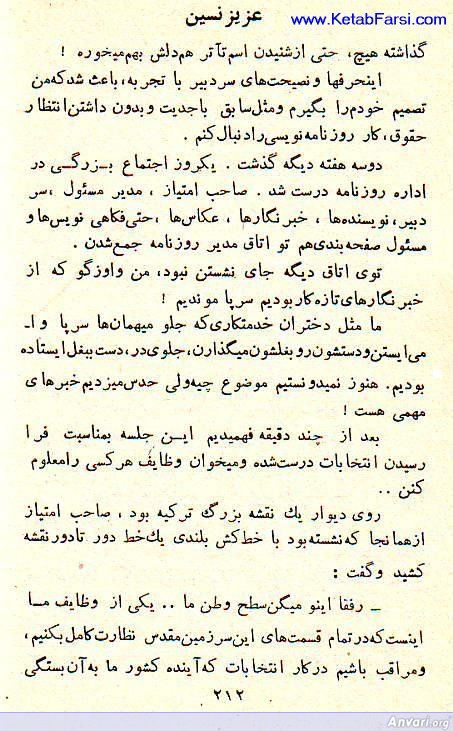 www.KetabFarsi.com
عزیز نسین
گذاشته هیچ، حتی از شنیدن اسم تآتر هم دلش بهم میخوره !
اینحرفها و نصیحت‌های سردبیر با تجربه، باعث شد که من
تصمیم خودم را بگیرم و مثل سابق باجدیت و بدون داشتن انتظار
حقوق، کار روزنامه نویسی را دنبال کنم .
دوسه هفته دیگه گذشت . یکروز اجتماع بـزرگـی در
اداره روزنامه درست شد . صاحب امتیاز ، مدیر مسئول ، سر
دبیر، نویسنده‌ها ، خبرنگارها ، عکاس‌ها ، حتی فکاهی نویس‌ها و
مسئول صفحه بندی هم تو اتاق مدیر روزنامه جمع شدن .
توی اتاق دیگه جای نشستن نبود، من واوزگو که از
خبرنگارهای تازه کار بودیم سرپا موندیم !
ما مثل دختران خدمتکاری که جلو میهمان‌ها سرپا و ا-
می‌ایستن و دستشون رو بغلشون میگذارن، جلوی در، دست ببغل ایستاده
بودیم. هنوز نمیدونستیم موضوع چیه ولی حدس میزدیم خبرهای
مهمی هست !
بعد از چند دقیقه فهمیدیم ایـن جلسه بمناسبت فرا
رسیدن انتخابات درست شده و میخوان وظایف هر کسی را معلوم
کنن ..
روی دیوار یك نقشه بزرگ ترکیه بود ، صاحب امتیاز
از همانجا که نشسته بود با خط کش بلندی یك خط دور تا دور نقشه
کشید و گفت :
ـ رفقا اینو میگن سطح وطن ما .. یکی از وظایف مـا
اینست که در تمام قسمت‌های این سرزمین مقدس نظارت کامل بکنیم،
و مراقب باشیم در کار انتخابات که آینده کشور ما به آن بستگی
۲۱۲
Anvari.org